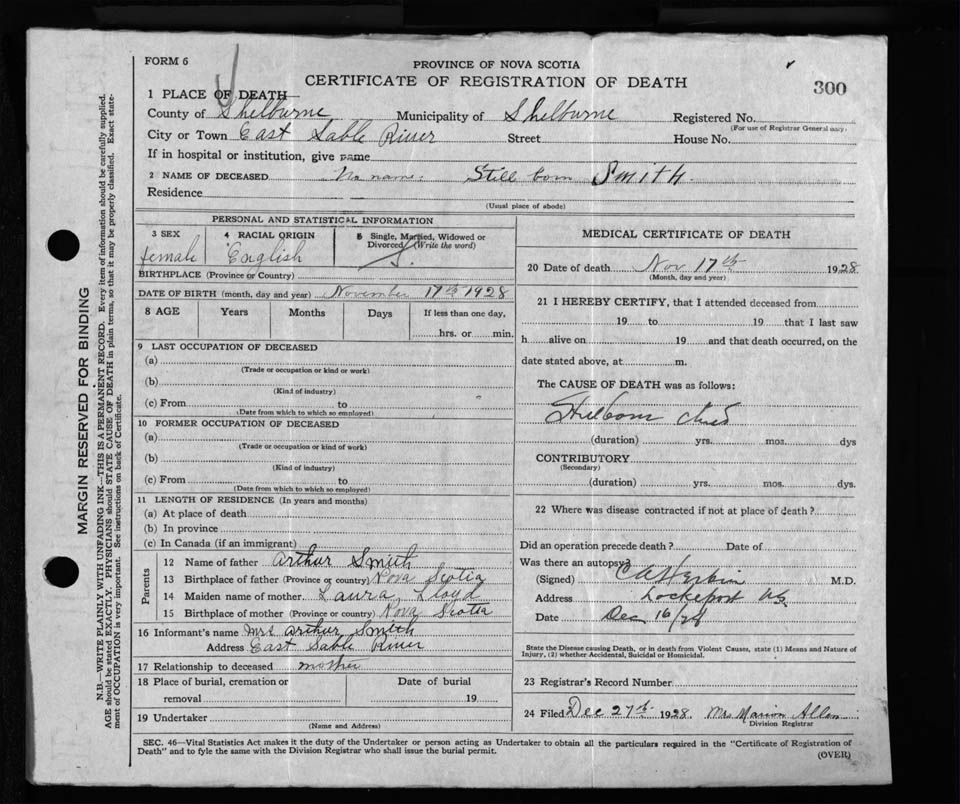 FORM 6
PROVINCE OF NOVA SCOTIA
CERTIFICATE OF REGISTRATION OF DEATH
300
1 PLACE OF DEATH—
County of Shelburne Municipality of Shelburne Registered No.
(For use of Registrar General only.)
City or Town East Sable River Street House No.
If in hospital or institution, give name
2 NAME OF DECEASED No name. Still born Smith.
Residence
(Usual place of abode)
PERSONAL AND STATISTICAL INFORMATION
3 SEX 4 RACIAL ORIGIN 5 Single, Married, Widowed or Divorced (Write the word)
female English S.
BIRTHPLACE (Province or Country)
DATE OF BIRTH (month, day and year) November 17th 1928
8 AGE Years Months Days If less than one day,
hrs. or min.
9 LAST OCCUPATION OF DECEASED
(a)
(Trade or occupation or kind or work)
(b)
(Kind of industry)
(c) From to
(Date from which to which so employed)
10 FORMER OCCUPATION OF DECEASED
(a)
(Trade or occupation or kind of work)
(b)
(Kind of industry)
(c) From to
(Date from which to which so employed)
11 LENGTH OF RESIDENCE (In years and months)
(a) At place of death
(b) In province
(c) In Canada (if an immigrant)
Parents
12 Name of father Arthur Smith
13 Birthplace of father (Province or country) Nova Scotia
14 Maiden name of mother Laura Lloyd
15 Birthplace of mother (Province or country) Nova Scotia
16 Informant's name Mrs Arthur Smith
Address East Sable River
17 Relationship to deceased mother
18 Place of burial, cremation or removal Date of burial 19
19 Undertaker
(Name and Address)
MEDICAL CERTIFICATE OF DEATH
20 Date of death Nov 17th 1928
(Month, day and year)
21 I HEREBY CERTIFY, that I attended deceased from
19 to 19 that I last saw
h alive on 19 and that death occurred, on the
date stated above, at m.
The CAUSE OF DEATH was as follows:
Stillborn child
(duration) yrs. mos. dys
CONTRIBUTORY
(Secondary)
(duration) yrs. mos. dys.
22 Where was disease contracted if not at place of death?
Did an operation precede death? Date of
Was there an autopsy?
(Signed) M.D.
Address Lockeport NS.
Date Dec 16/28
State the Disease causing Death, or in death from Violent Causes, state (1) Means and Nature of
Injury, (2) whether Accidental, Suicidal or Homicidal.
23 Registrar's Record Number
24 Filed Dec 27th 1928. Mrs Marion Allen
Division Registrar
SEC. 46—Vital Statistics Act makes it the duty of the Undertaker or person acting as Undertaker to obtain all the particulars required in the "Certificate of Registration of
Death" and to fyle the same with the Division Registrar who shall issue the burial permit.
(OVER)
MARGIN RESERVED FOR BINDING
N.B.—WRITE PLAINLY WITH UNFADING INK—THIS IS A PERMANENT RECORD. Every item of information should be carefully supplied.
AGE should be stated EXACTLY. PHYSICIANS should STATE CAUSE OF DEATH in plain terms, so that it may be properly classified. Exact state-
ment of OCCUPATION is very important. See instructions on back of Certificate.